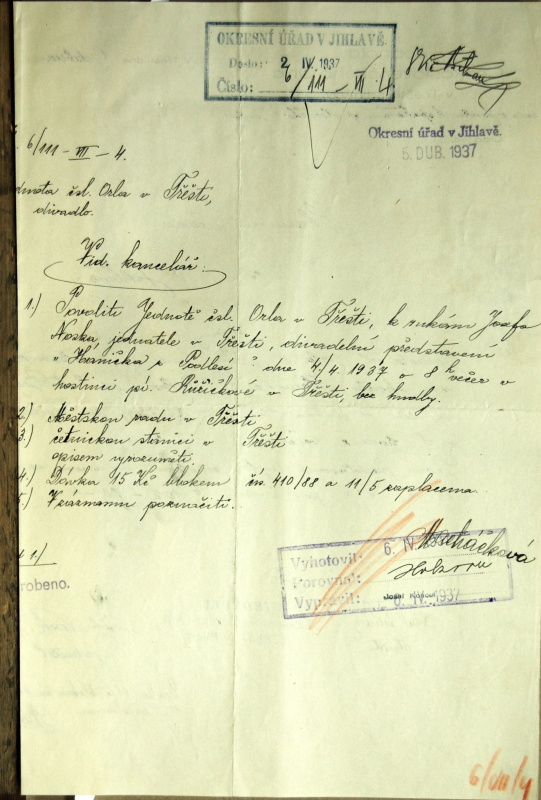 OKRESNÍ ÚŘAD V JIHLAVĚ.
Došlo: 2 IV. 1937
Číslo: 6/111 - VII - 4
Okresní úřad v Jihlavě.
5. DUB. 1937
6/111 - VII - 4.
dnota čsl. Orla v Třešti,
divadlo.
Vid. kancelář:
1.) Povoliti Jednotě čsl. Orla v Třešti, k rukám Josefa
Noska, jednatele v Třešti, divadelní představení
" z Podlesí" dne 4/4. 1937 o 8 h večer v
hostinci pí. Růžičkové v Třešti, bez hudby.
2.) Městskou radu v Třešti
3.) četnickou stanici v Třešti
opisem vyrozuměti.
4.) Dávka 15 Kč blokem čís. 410/88 a 11/5 zaplacena.
5.) V záznamu poznačiti.
1.)
robeno.
Vyhotovil: 6. IV.
Porovnal:
Vypravil: 6. IV. 1937
6/VII/4